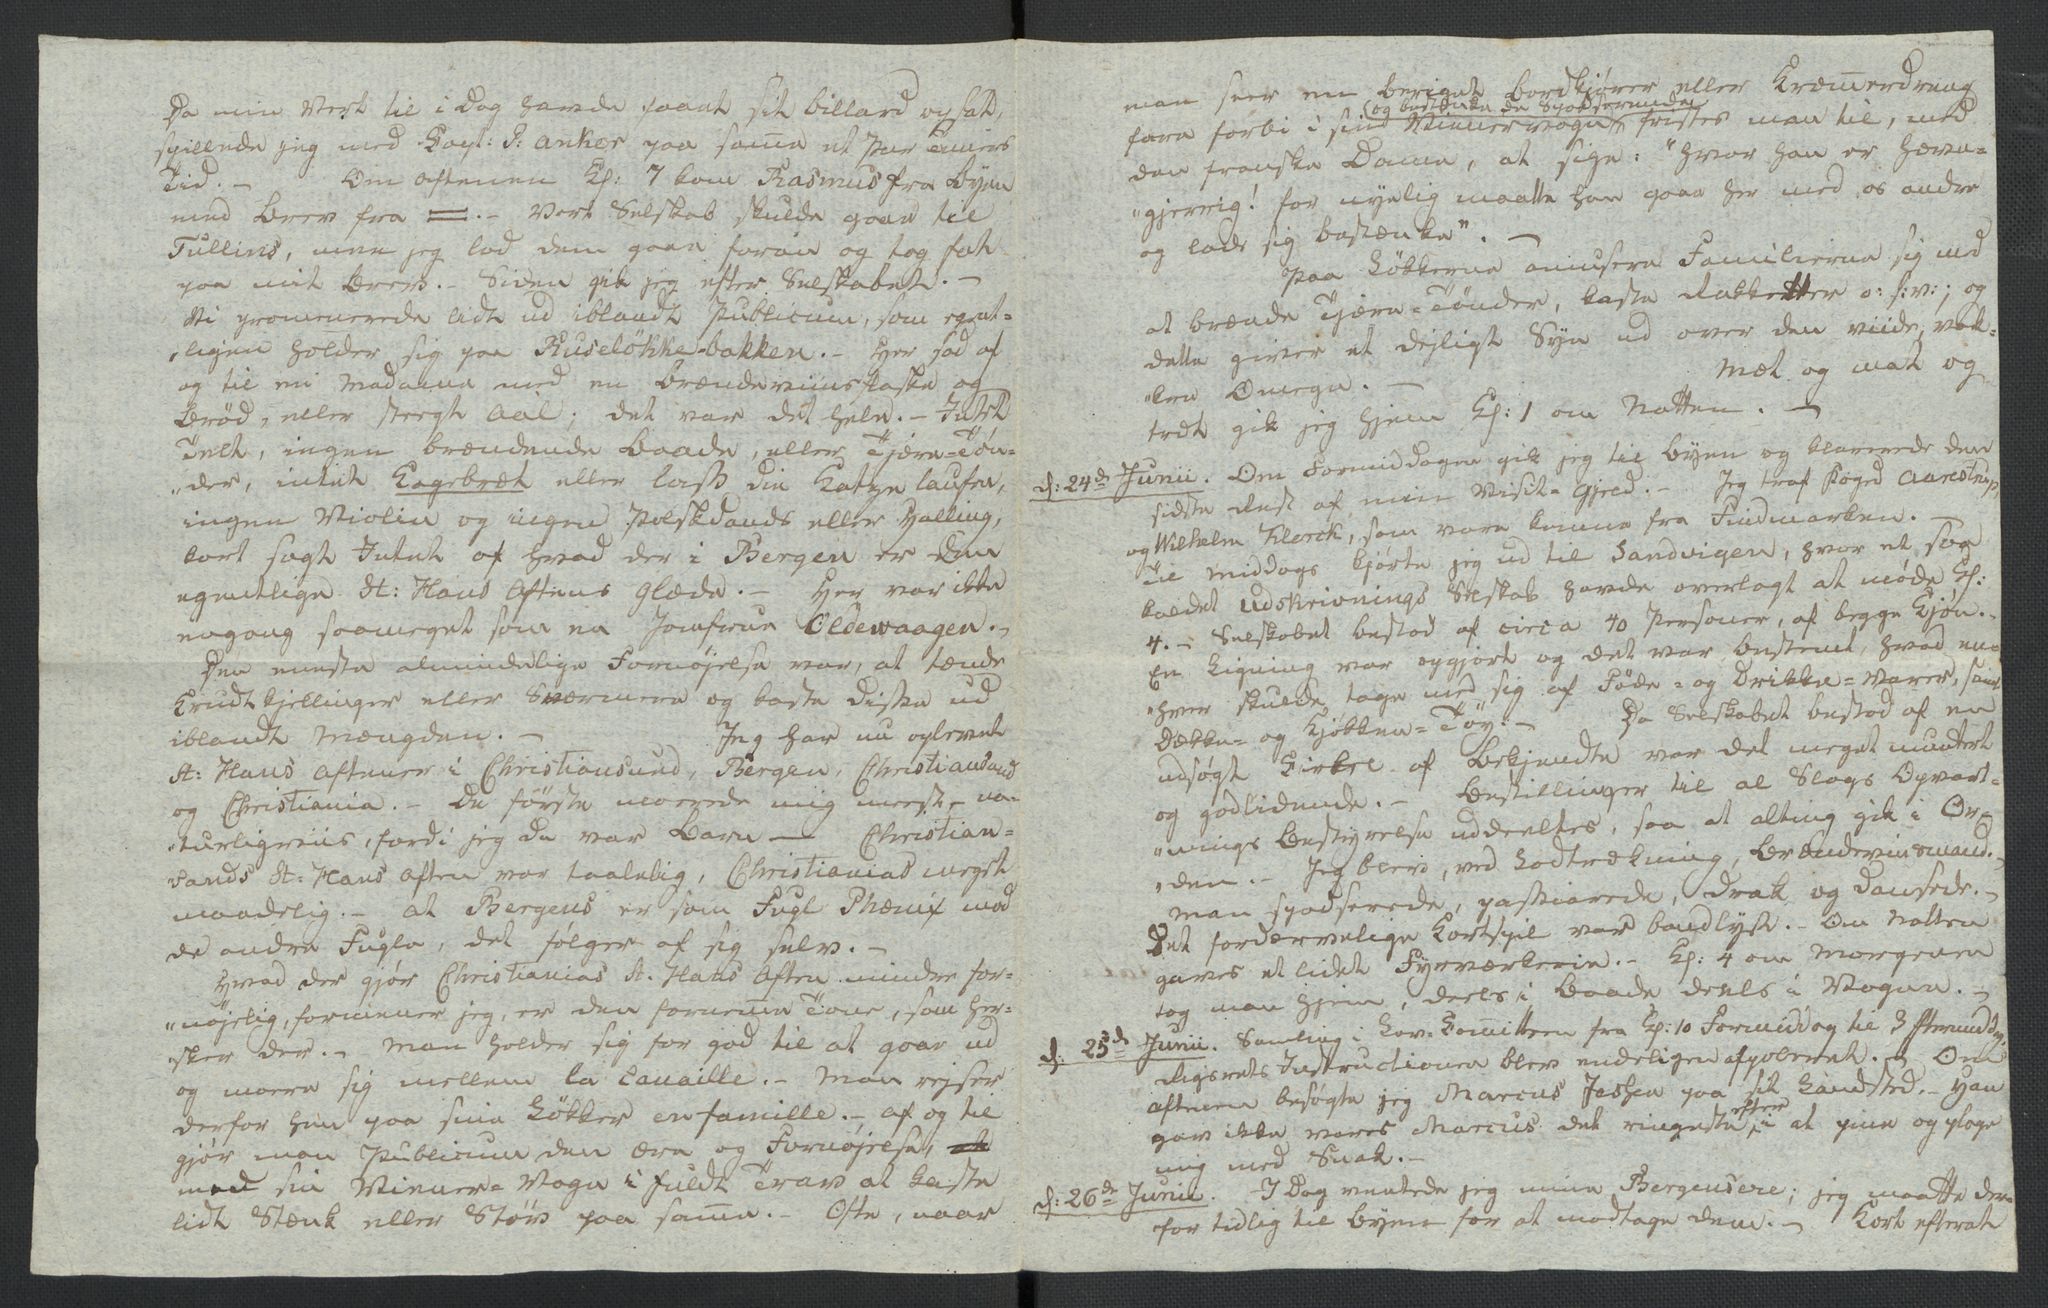 Da min Vert til i Dag havde faaet sit billard opsat,
spillede jeg med Capt: P: Anker paa samme et Par Timers
Tid. – Om Aftenen Kl: 7 kom Rasmus fra Byen
med Brev fra =. – Vort Selskab skulde gaae til
Tullins, men jeg lod dem gaae foran og tog fat
paa mit Brev. – Siden gik jeg efter Selskabet. –
Vi promenerede lidt ud iblandt Publicum, som egent-
„ligen holder sig paa Ruselökke-bakken. – Her sad af
og til en Madamme med en Brændeviinsflaske og
Brød, eller stegt Aal; det var det hele. – Intet
Telt, ingen brændende Baade, eller Tjære-Tön-
„der, intet Kagebræt eller lass die Katze laufen,
ingen Violin og ingen Polskdands eller Halling,
kort sagt Intet af hvad der i Bergen er den
egentlige St: Hans Aftens Glæde. – Her var ikke
engang saameget som en Jomfrue Oldewaagen. –
Den eneste almindelige Fornøjelse var, at tænde
Krudtkjellinger eller Sværmere og kaste disse ud
iblandt Mængden. – Jeg har nu oplevet
St: Hans Aftener i Christiansund, Bergen, Christiansand
og Christiania. – De første morede mig meest, na-
„turligviis, fordi jeg da var Barn – Christian-
sands St: Hans Aften var taalelig, Christianias meget
maadelig. – At Bergens er som Fugl Phønix mod
de andre Fugle, det følger af sig selv. –
Hvad der gjør Christianias St. Hans Aften mindre for-
„nøjelig, formener jeg, er den fornemme Tone, som her-
„sker der. – Man holder sig for god til at gaae ud
og more sig mellem la Canaille. – Man rejser
derfor hen paa sine Lökker en famille. – Af og til
gjör man Publicum den Ære og Fornøjelse,
med sin Wiener-Vogn i fuldt Trav at kaste
lidt Stænk eller Støv paa samme. – Ofte, naar
man seer en beriget Bordkjører eller Kræmmerdreng
(og bestænke de Spadserende)
fare forbi i sin Wienervogn, fristes man til, med
den franske Dame, at sige: "hvor han er hævn-
„gjerrig! for nyelig maatte han gaae her med os andre
og lade sig bestænke". –
Paa Lökkerne amusere Familierne sig med
at brænde Tjære-Tönder, kaste Raketter o: s: v:; og
dette giver et dejligt Syn ud over den viide, vak-
„kre Omegn. – Mæt og mat og
træt gik jeg hjem Kl: 1 om Natten. –
d: 24de Junii. Om Formiddagen gik jeg til Byen og klarerede den
sidste Rest af min Visit-Gjæld. – Jeg traf Foged Aarestrup
og Wilhelm Klerck, som vare komne fra Findmarken. –
Til Middags kjørte jeg ud til Sandvigen, hvor et saa
kaldet Udskrivnings Selskab havde overlagt at møde Kl:
4. – Selskabet bestod af circa 40 Personer, af begge Kjön. –
En Ligning var opgjort og det var bestemt, hvad en-
„hver skulde tage med sig af Föde- og Drikke-Varer, samt
Dække- og Kjökken-Töy. – Da Selskabet bestod af en
udsøgt Kirkel af Bekjendte var det meget muntert
og godlidende. – Bestillinger til al Slags Opvart-
„nings Bestyrelse uddeeltes, saa at alting gik i Or-
„den. – Jeg blev, ved Lodtrækning, Brændeviinsmand. –
Man spadserede, passiarede, drak og dansede. –
Det fordærvelige Kortspil var bandlyst. – Om Natten
gaves et lidet Fyrværkerie. – Kl: 4 om Morgenen
tog man hjem, deels i Baade deels i Vogne. –
d: 25de Junii. Samling i Lov-Committeen fra Kl: 10 Formiddag til 3 Eftermiddag.
Rigsrets Instructionen blev endeligen afpoleret. – Om
Aftenen besøgte jeg Marcus Jeshen paa sit Landsted. – Han
efter
gav ikke vores Marcus det ringeste, i at pine og plage
mig med Snak. –
d: 26de Junii. I Dag ventede jeg mine Bergensere; jeg maatte der-
for tidlig til Byen for at modtage dem. – Kort efterat